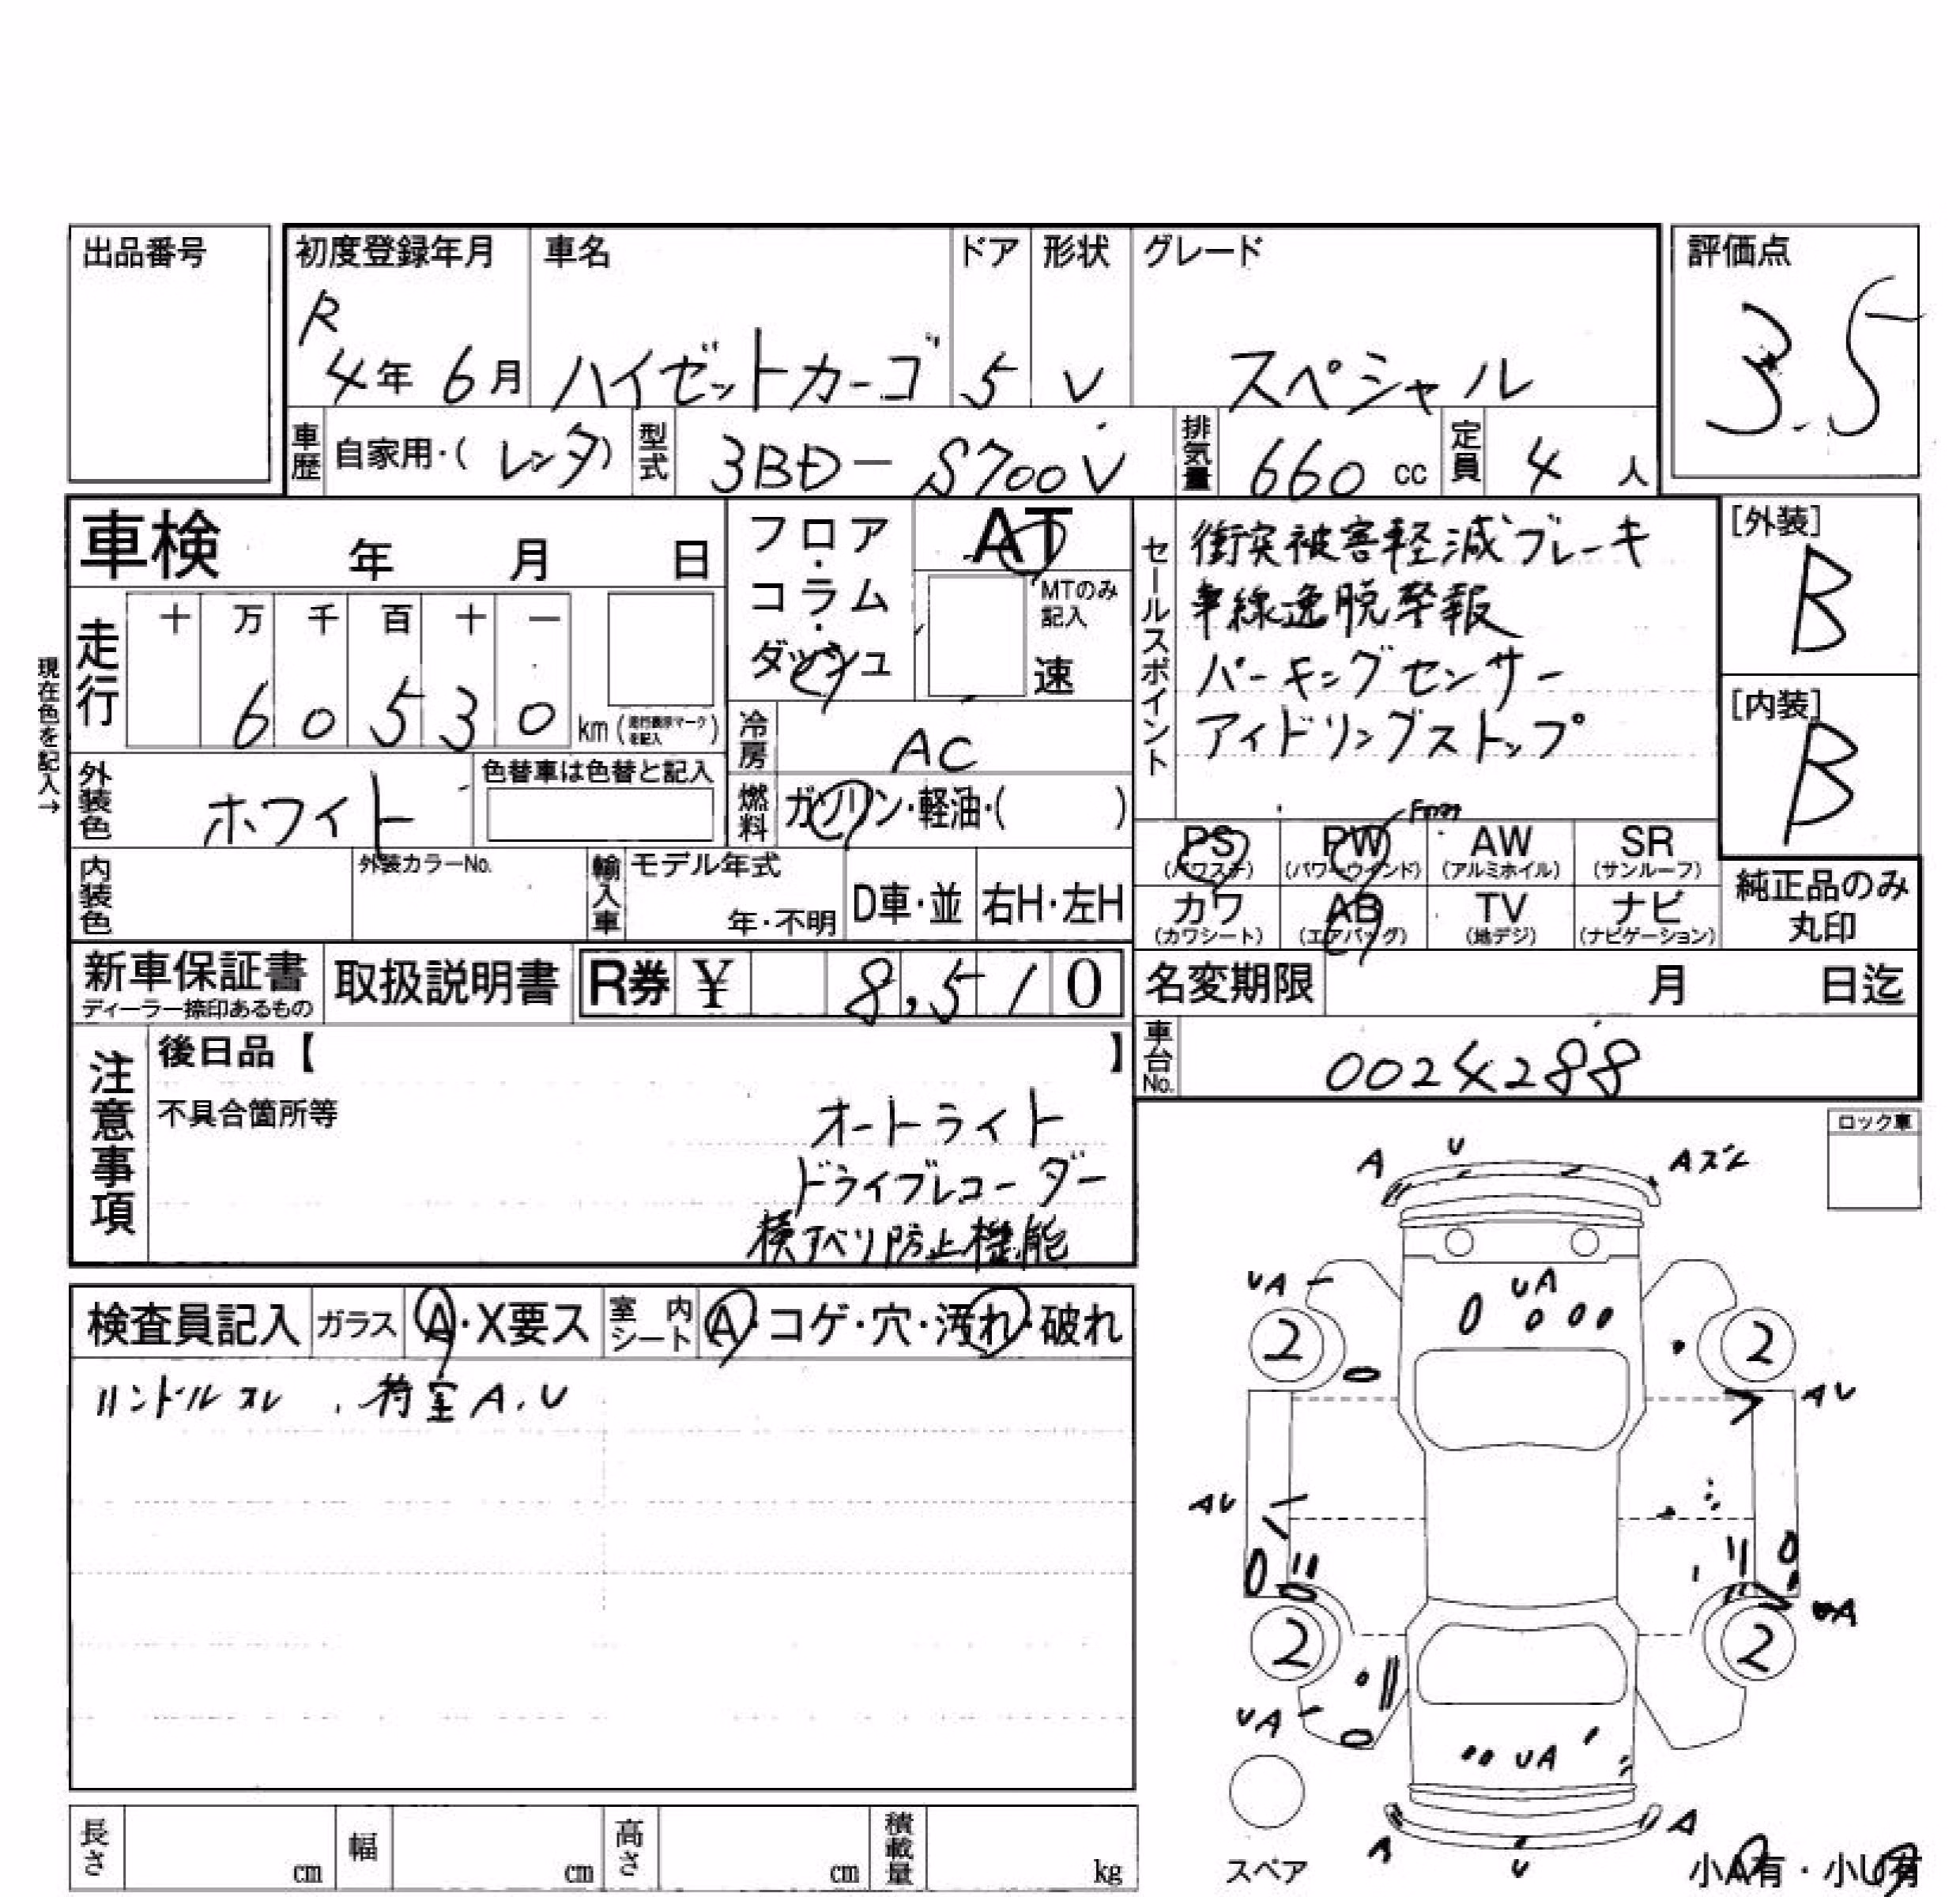 出品番号
初度登録年月 車名 ドア 形状 グレード 評価点
R
4年 6月 ハイゼットカーゴ 5 V スペシャル 3.5
車歴 自家用・(レンタ) 型式 3BD-S700V 排気量 660 cc 定員 4 人
車検 年 月 日
フロア・コラム・ダッシュ
AT
MTのみ記入
速
セールスポイント
衝突被害軽減ブレーキ
車線逸脱警報
パーキングセンサー
アイドリングストップ
[外装]
B
[内装]
B
現在色を記入→
走行 十 万 千 百 十 一
6 0 5 3 0 km (走行表示マークを記入)
冷房 AC
外装色 ホワイト 色替車は色替と記入
燃料 ガソリン・軽油・( )
PS (パワステ) PW (パワーウインド) AW (アルミホイル) SR (サンルーフ)
カワ (カワシート) AB (エアバッグ) TV (地デジ) ナビ (ナビゲーション)
純正品のみ
丸印
内装色 外装カラーNo. 輸入車 モデル年式 年・不明 D車・並 右H・左H
新車保証書 取扱説明書 R券 ¥ 8,510
ディーラー捺印あるもの
名変期限 月 日迄
車台No. 0024288
注意事項
後日品【 】
不具合箇所等
オートライト
ドライブレコーダー
横スベリ防止機能
ロック車
検査員記入 ガラス A・X要ス 室内シート A・コゲ・穴・汚れ・破れ
ハンドルスレ 、荷室A.U
A U Aズレ
UA UA
2 2
AU
AU
UA
2 2
UA
UA
A A
U
スペア
小A有・小U有
長さ cm 幅 cm 高さ cm 積載量 kg